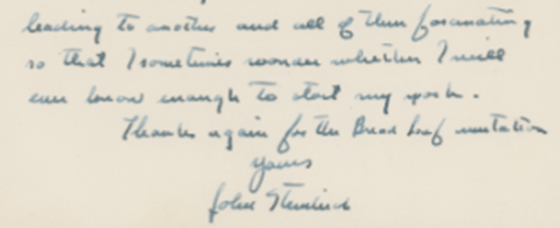 leading to another and all of them fascinating
so that I sometimes wonder whether I will
ever know enough to start my work.
Thanks again for the Bread Loaf invitation
Yours
John Steinbeck